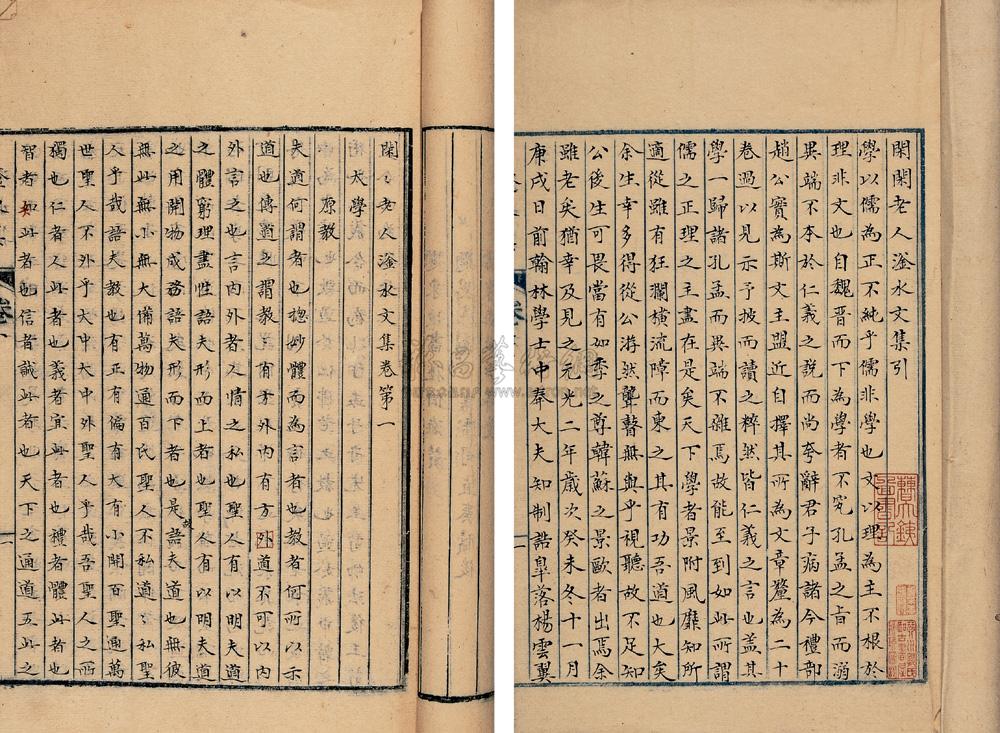 閑閑老人滏水文集引
學以儒為正不純乎儒非學也文以理為主不根於
理非文也自魏晉而下為學者不究孔孟之旨而溺
異端不本於仁義之說而尚夸辭君子病諸今禮部
趙公實為斯文主盟近自擇其所為文章釐為二十
卷過以見示予披而讀之粹然皆仁義之言也蓋其
學一歸諸孔孟而異端不雜焉故能至到如此所謂
儒之正理之主盡在是矣天下學者景附風靡知所
適從雖有狂瀾橫流障而東之其有功吾道也大矣
余生幸多得從公游然聾瞽無與乎視聽故不足知
公後生可畏當有如李之尊韓蘇之景歐者出焉余
雖老矣猶幸及見之元光二年歲次癸未冬十一月
庚戌日前翰林學士中奉大夫知制誥臯落楊雲翼
閑〻老人滏水文集卷第一
大學
原教
夫道何謂者也總妙體而為言者也教者何所以示
道也傳道之謂教〻有方外內有方外道不可以內
外言之也言內外者人情之私也聖人有以明夫道
之體窮理盡性語夫形而上者也聖人有以明夫道
之用開物成務語夫形而下者也是故語夫道也無彼
無此無小無大備萬物通百氏聖人不私道〻私聖
人乎哉語夫教也有正有偏有大有小開百聖通萬
世聖人不外乎大中大中外聖人乎哉吾聖人之所
獨也仁者人此者也義者宜此者也禮者體此者也
智者知此者也信者誠此者也天下之通道五此之